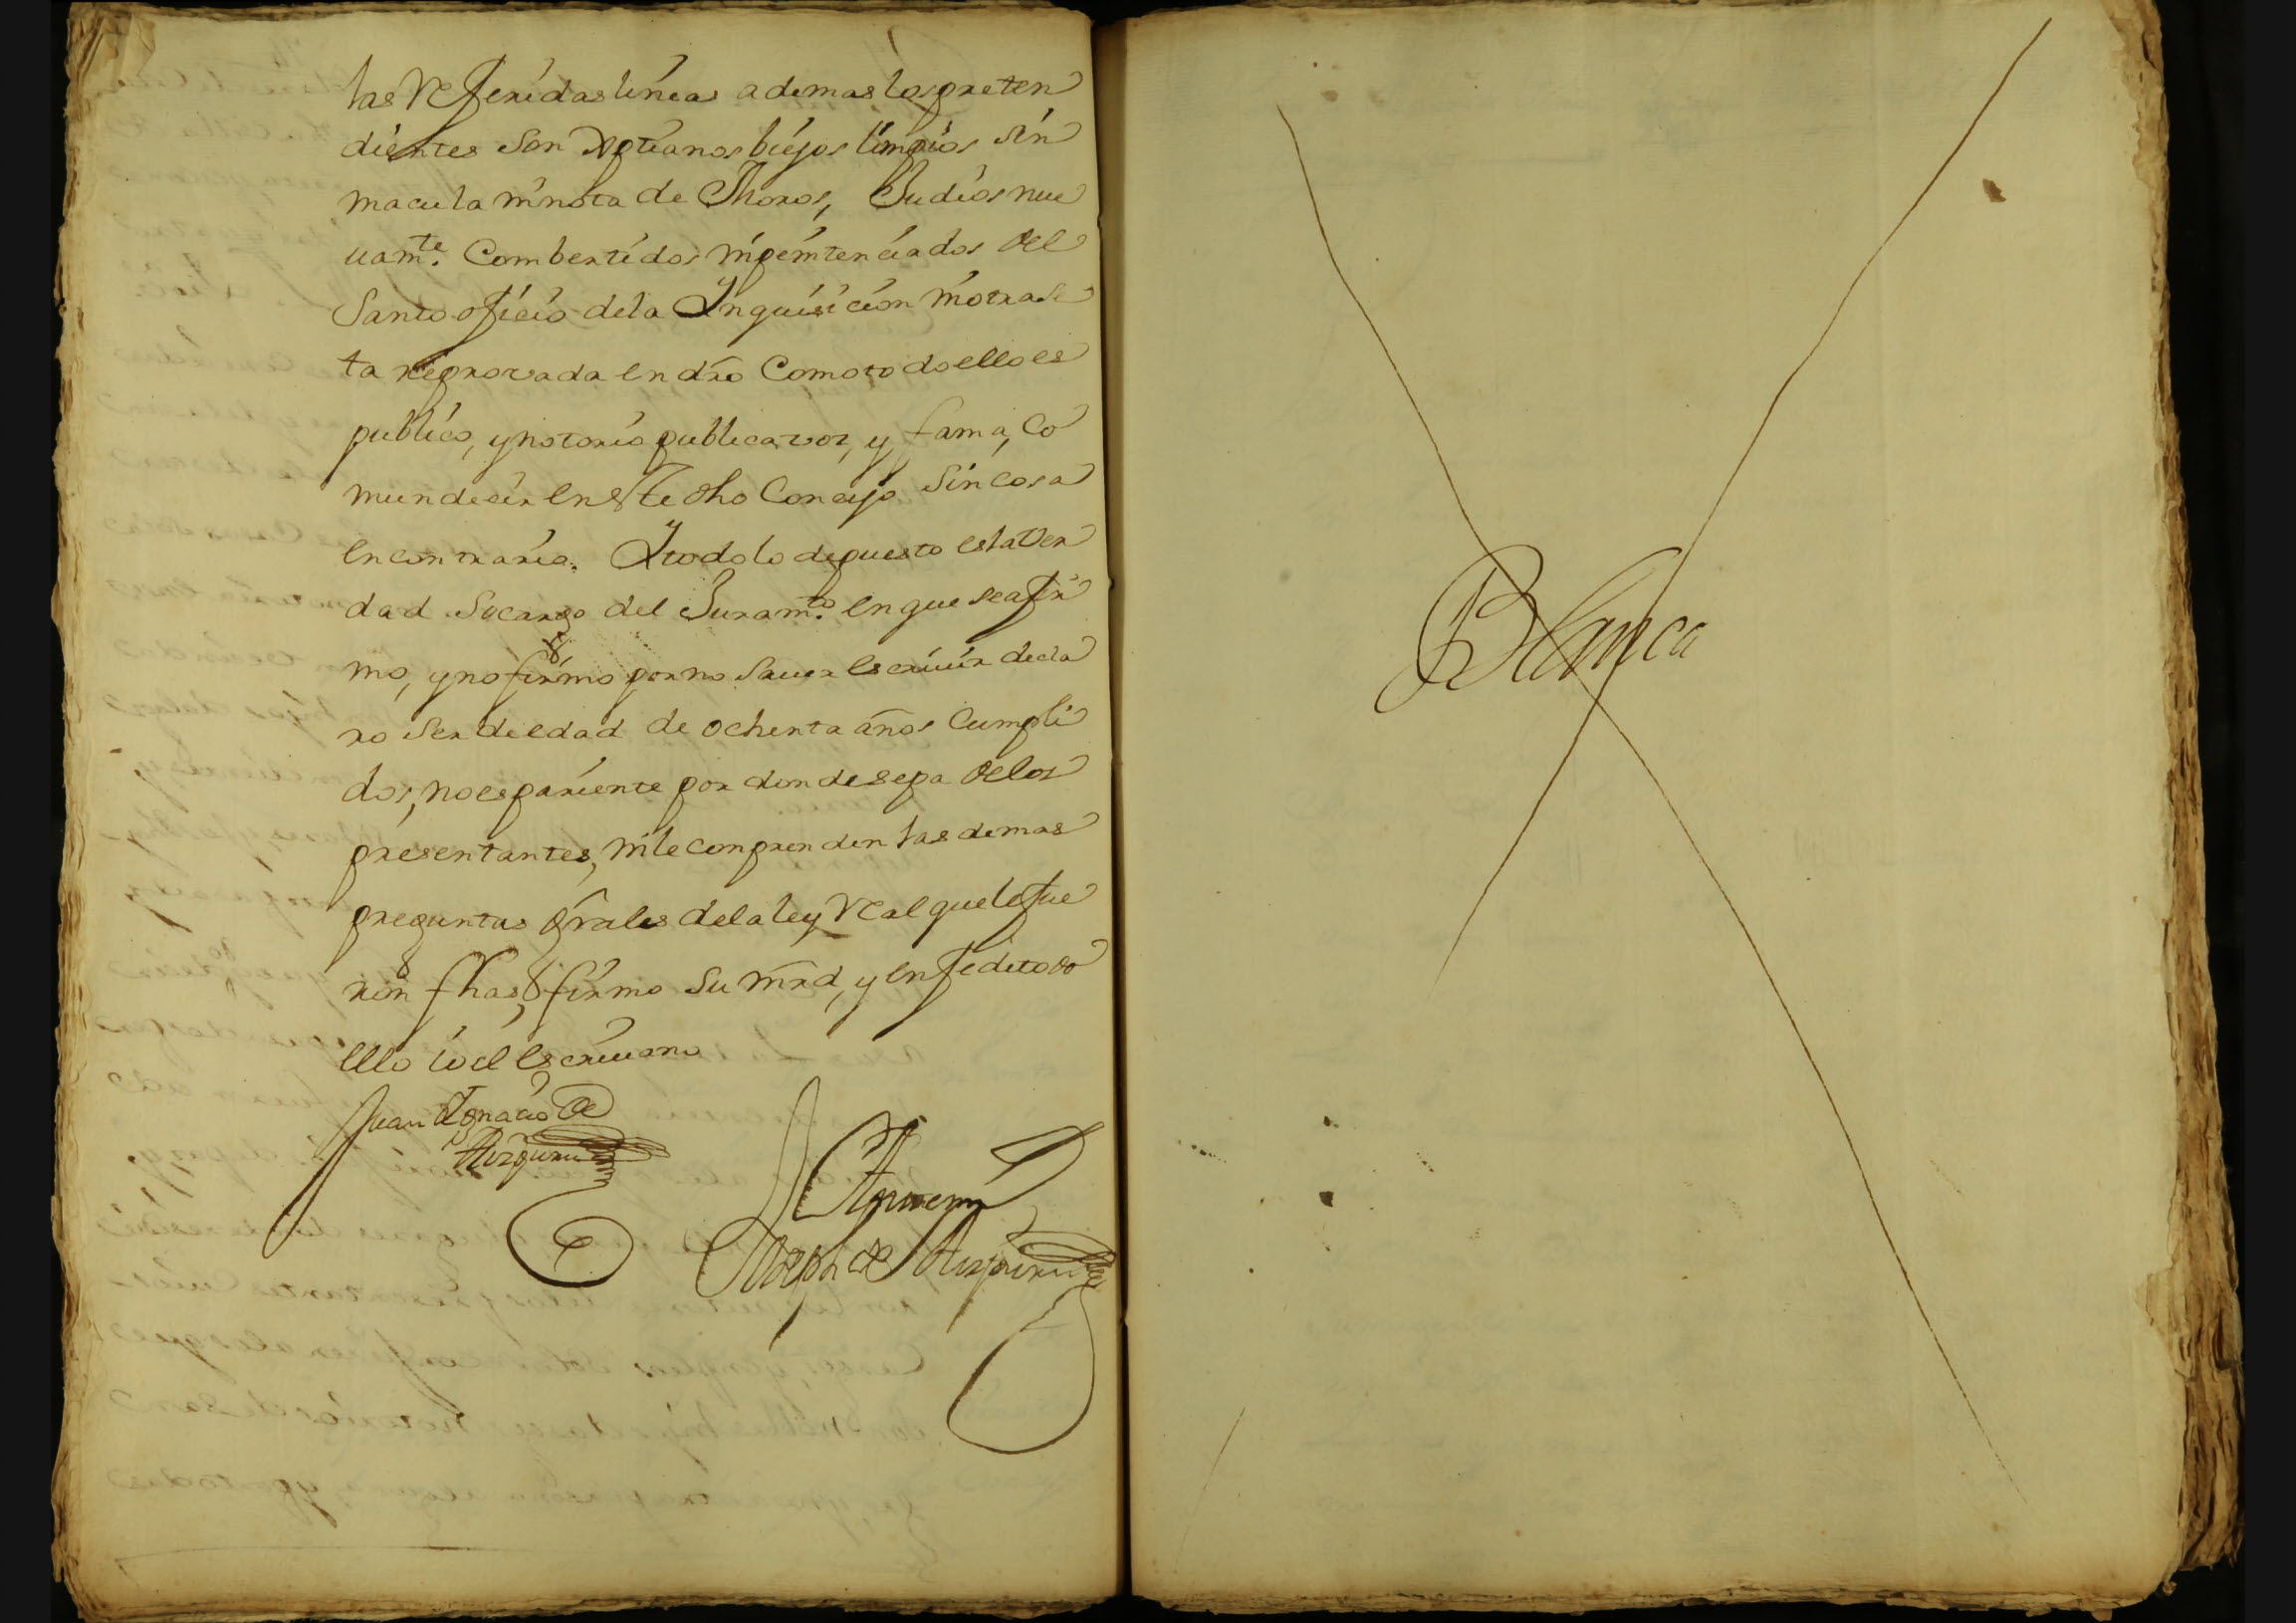 las Referidas lineas ademas los preten
dientes son Xptianos biejos limpios sin
macula ni nota de Moros, Judios nue
uamte. Combertidos ni penitenciados del
Santo oficio de la Inquisicion ni otra sec
ta reprovada en dro Como todo ello es
publico, y notorio publica voz, y fama, Co
mun decir en este dho Concejo sin cosa
en contrario. Y todo lo depuesto es la ver
dad so cargo del Juramto. en que se afir
mo, y no firmo por no saver escriuir decla
ro ser de edad de ochenta años Cumpli
dos, no es pariente por donde sepa de los
presentantes, ni le conprenden las demas
preguntas grales de la ley Real que le fue
ron fhas, firmo su mrd, y en fe de todo
ello io el escriuano
Juan Ignacio de
Aizpuru
Ante mi
Joseph de Aizpuru
Blanca